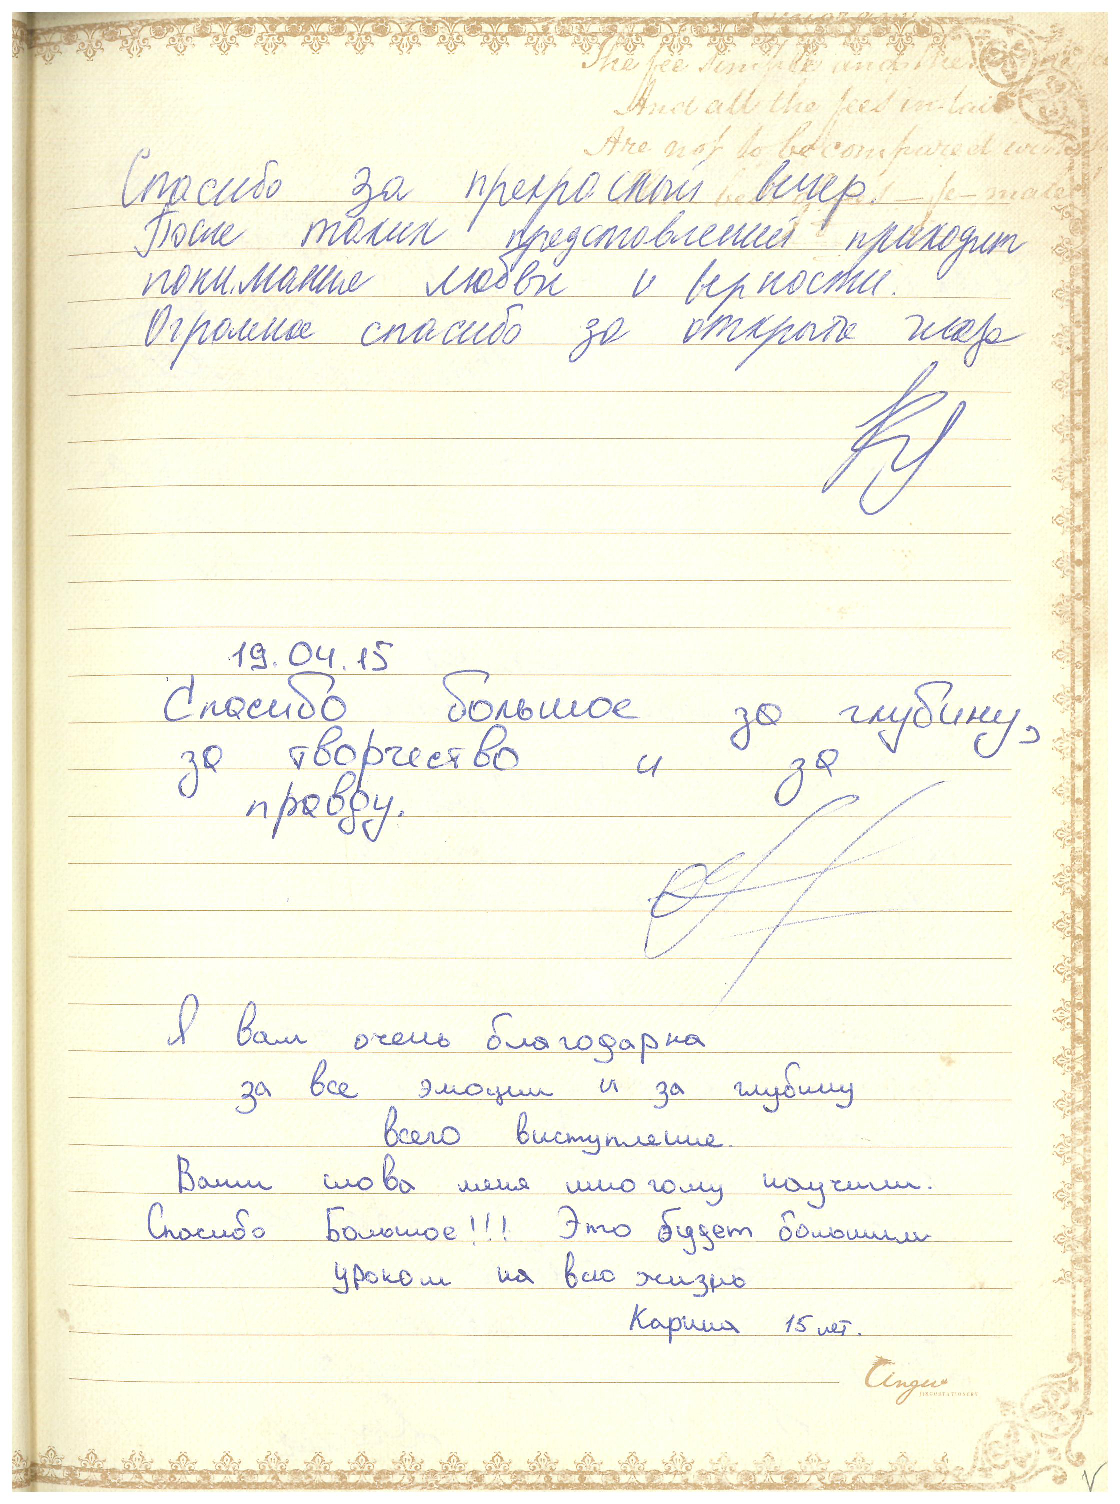 The fee simple and the
And all the fees in tail
Are not to be compared with
Спасибо за прекрасный вечер.
После таких представлений приходит
понимания любви и верности.
Огромное спасибо за открыте глаза
19.04.15
Спасибо большое за глубину,
за творчество и за
правду.
Я вам очень благодарна
за все эмоции и за глубину
всего выступление.
Ваши слова меня многому научили.
Спасибо Большое!!! Это будет большим
уроком на всю жизнь
Карина 15 лет.